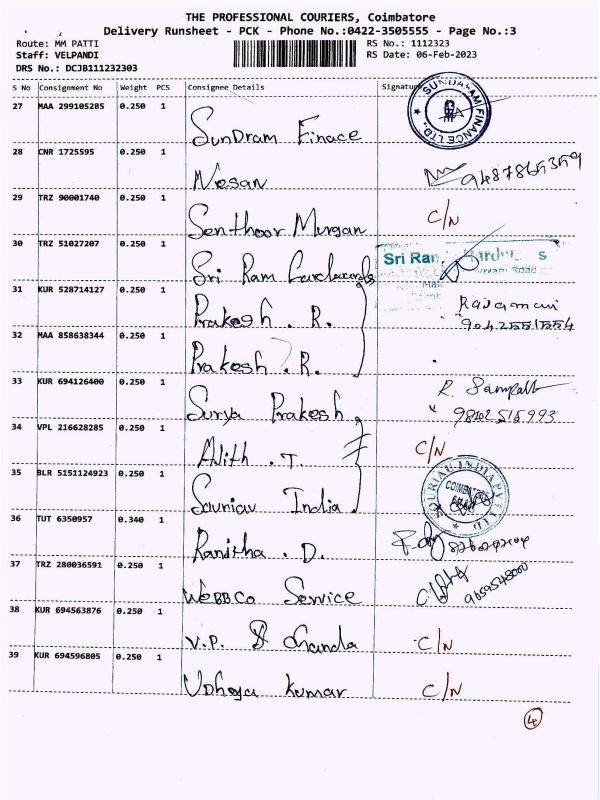 THE PROFESSIONAL COURIERS, Coimbatore
Delivery Runsheet - PCK - Phone No.:0422-3505555 - Page No.:3
Route: MM PATTI RS No.: 1112323
Staff: VELPANDI RS Date: 06-Feb-2023
DRS No.: DCJB111232303
S No Consignment No Weight PCS Consignee Details Signature
27 MAA 299105285 0.250 1 SUNDARAM FINANCE LTD.
SunDram Finace
28 CNR 1725595 0.250 1
Nesan 9487865359
29 TRZ 90001740 0.250 1 C/N
Senthoor Murgan
30 TRZ 51027207 0.250 1 Sri Ram
Sri Ram
31 KUR 528714127 0.250 1 Rajamani
Prakesh . R.
32 MAA 858638344 0.250 1
Prakesh . R.
33 KUR 694126400 0.250 1 R. Sampath
Surya Prakesh
34 VPL 216628285 0.250 1 C/N
Ajith . T.
35 BLR 5151124923 0.250 1 SOURIAU INDIA PVT LTD COIMBATORE
Souriau India.
36 TUT 6350957 0.340 1
Ranitha . D.
37 TRZ 280036591 0.250 1
WEBBCo Service
38 KUR 694563876 0.250 1
V.P. Chanda C/N
39 KUR 694596805 0.250 1
Udhaya Kumar C/N
4